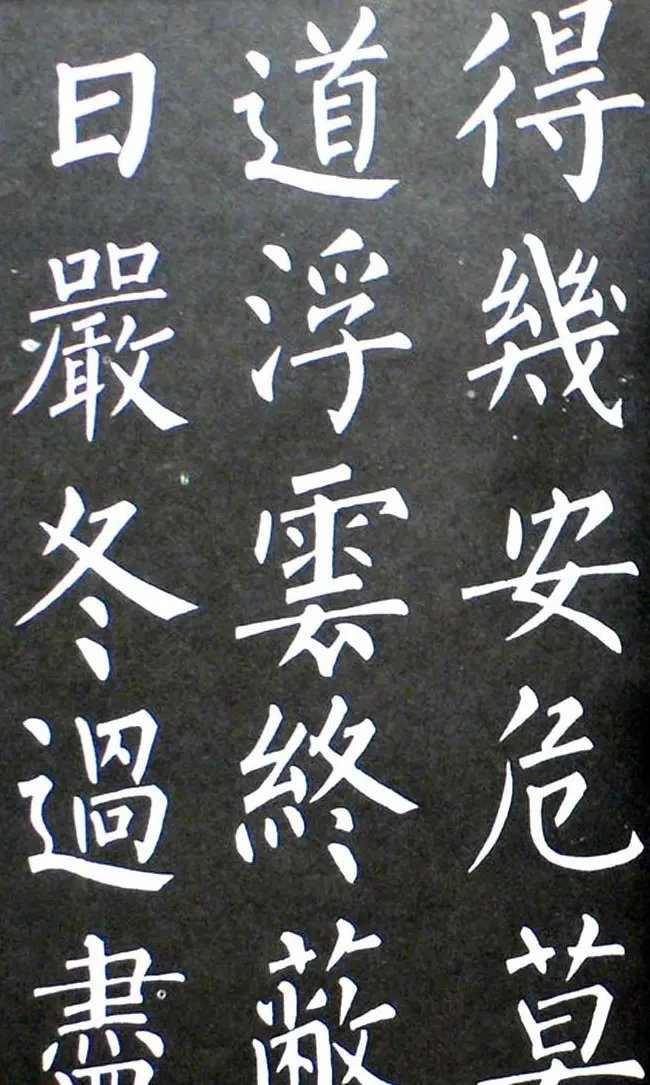 得幾安危莫
道浮雲終蔽
日嚴冬過盡